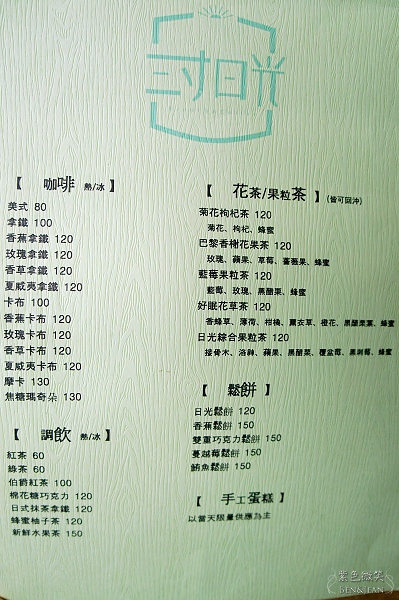 三寸日光
【 咖啡 熱/冰 】
美式 80
拿鐵 100
香蕉拿鐵 120
玫瑰拿鐵 120
香草拿鐵 120
夏威夷拿鐵 120
卡布 100
香蕉卡布 120
玫瑰卡布 120
香草卡布 120
夏威夷卡布 120
摩卡 130
焦糖瑪奇朵 130
【 調飲 熱/冰 】
紅茶 60
綠茶 60
伯爵紅茶 100
棉花糖巧克力 120
日式抹茶拿鐵 120
蜂蜜柚子茶 120
新鮮水果茶 150
【 花茶/果粒茶 】(皆可回沖)
菊花枸杞茶 120
菊花、枸杞、蜂蜜
巴黎香榭花果茶 120
玫瑰、蘋果、草莓、薔薇果、蜂蜜
藍莓果粒茶 120
藍莓、玫瑰、黑醋栗、蜂蜜
好眠花草茶 120
香蜂草、薄荷、柑橘、薰衣草、橙花、黑醋栗葉、蜂蜜
日光綜合果粒茶 120
接骨木、洛神、蘋果、黑醋栗、覆盆莓、黑刺莓、蜂蜜
【 鬆餅 】
日光鬆餅 120
香蕉鬆餅 150
雙重巧克力鬆餅 150
蔓越莓鬆餅 150
鮪魚鬆餅 150
【 手工蛋糕 】
以當天限量供應為主
紫色微笑
BEN&JEAN